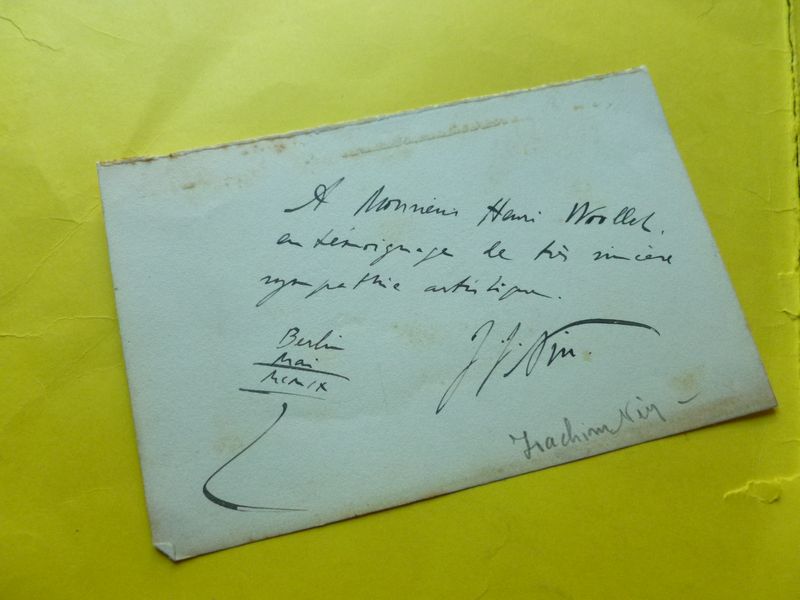 A Monsieur Henri Woollet.
en témoignage de très sincère
sympathie artistique.
Berlin
Mai
MCMIX
J. J. Nin.
Joachim Nin